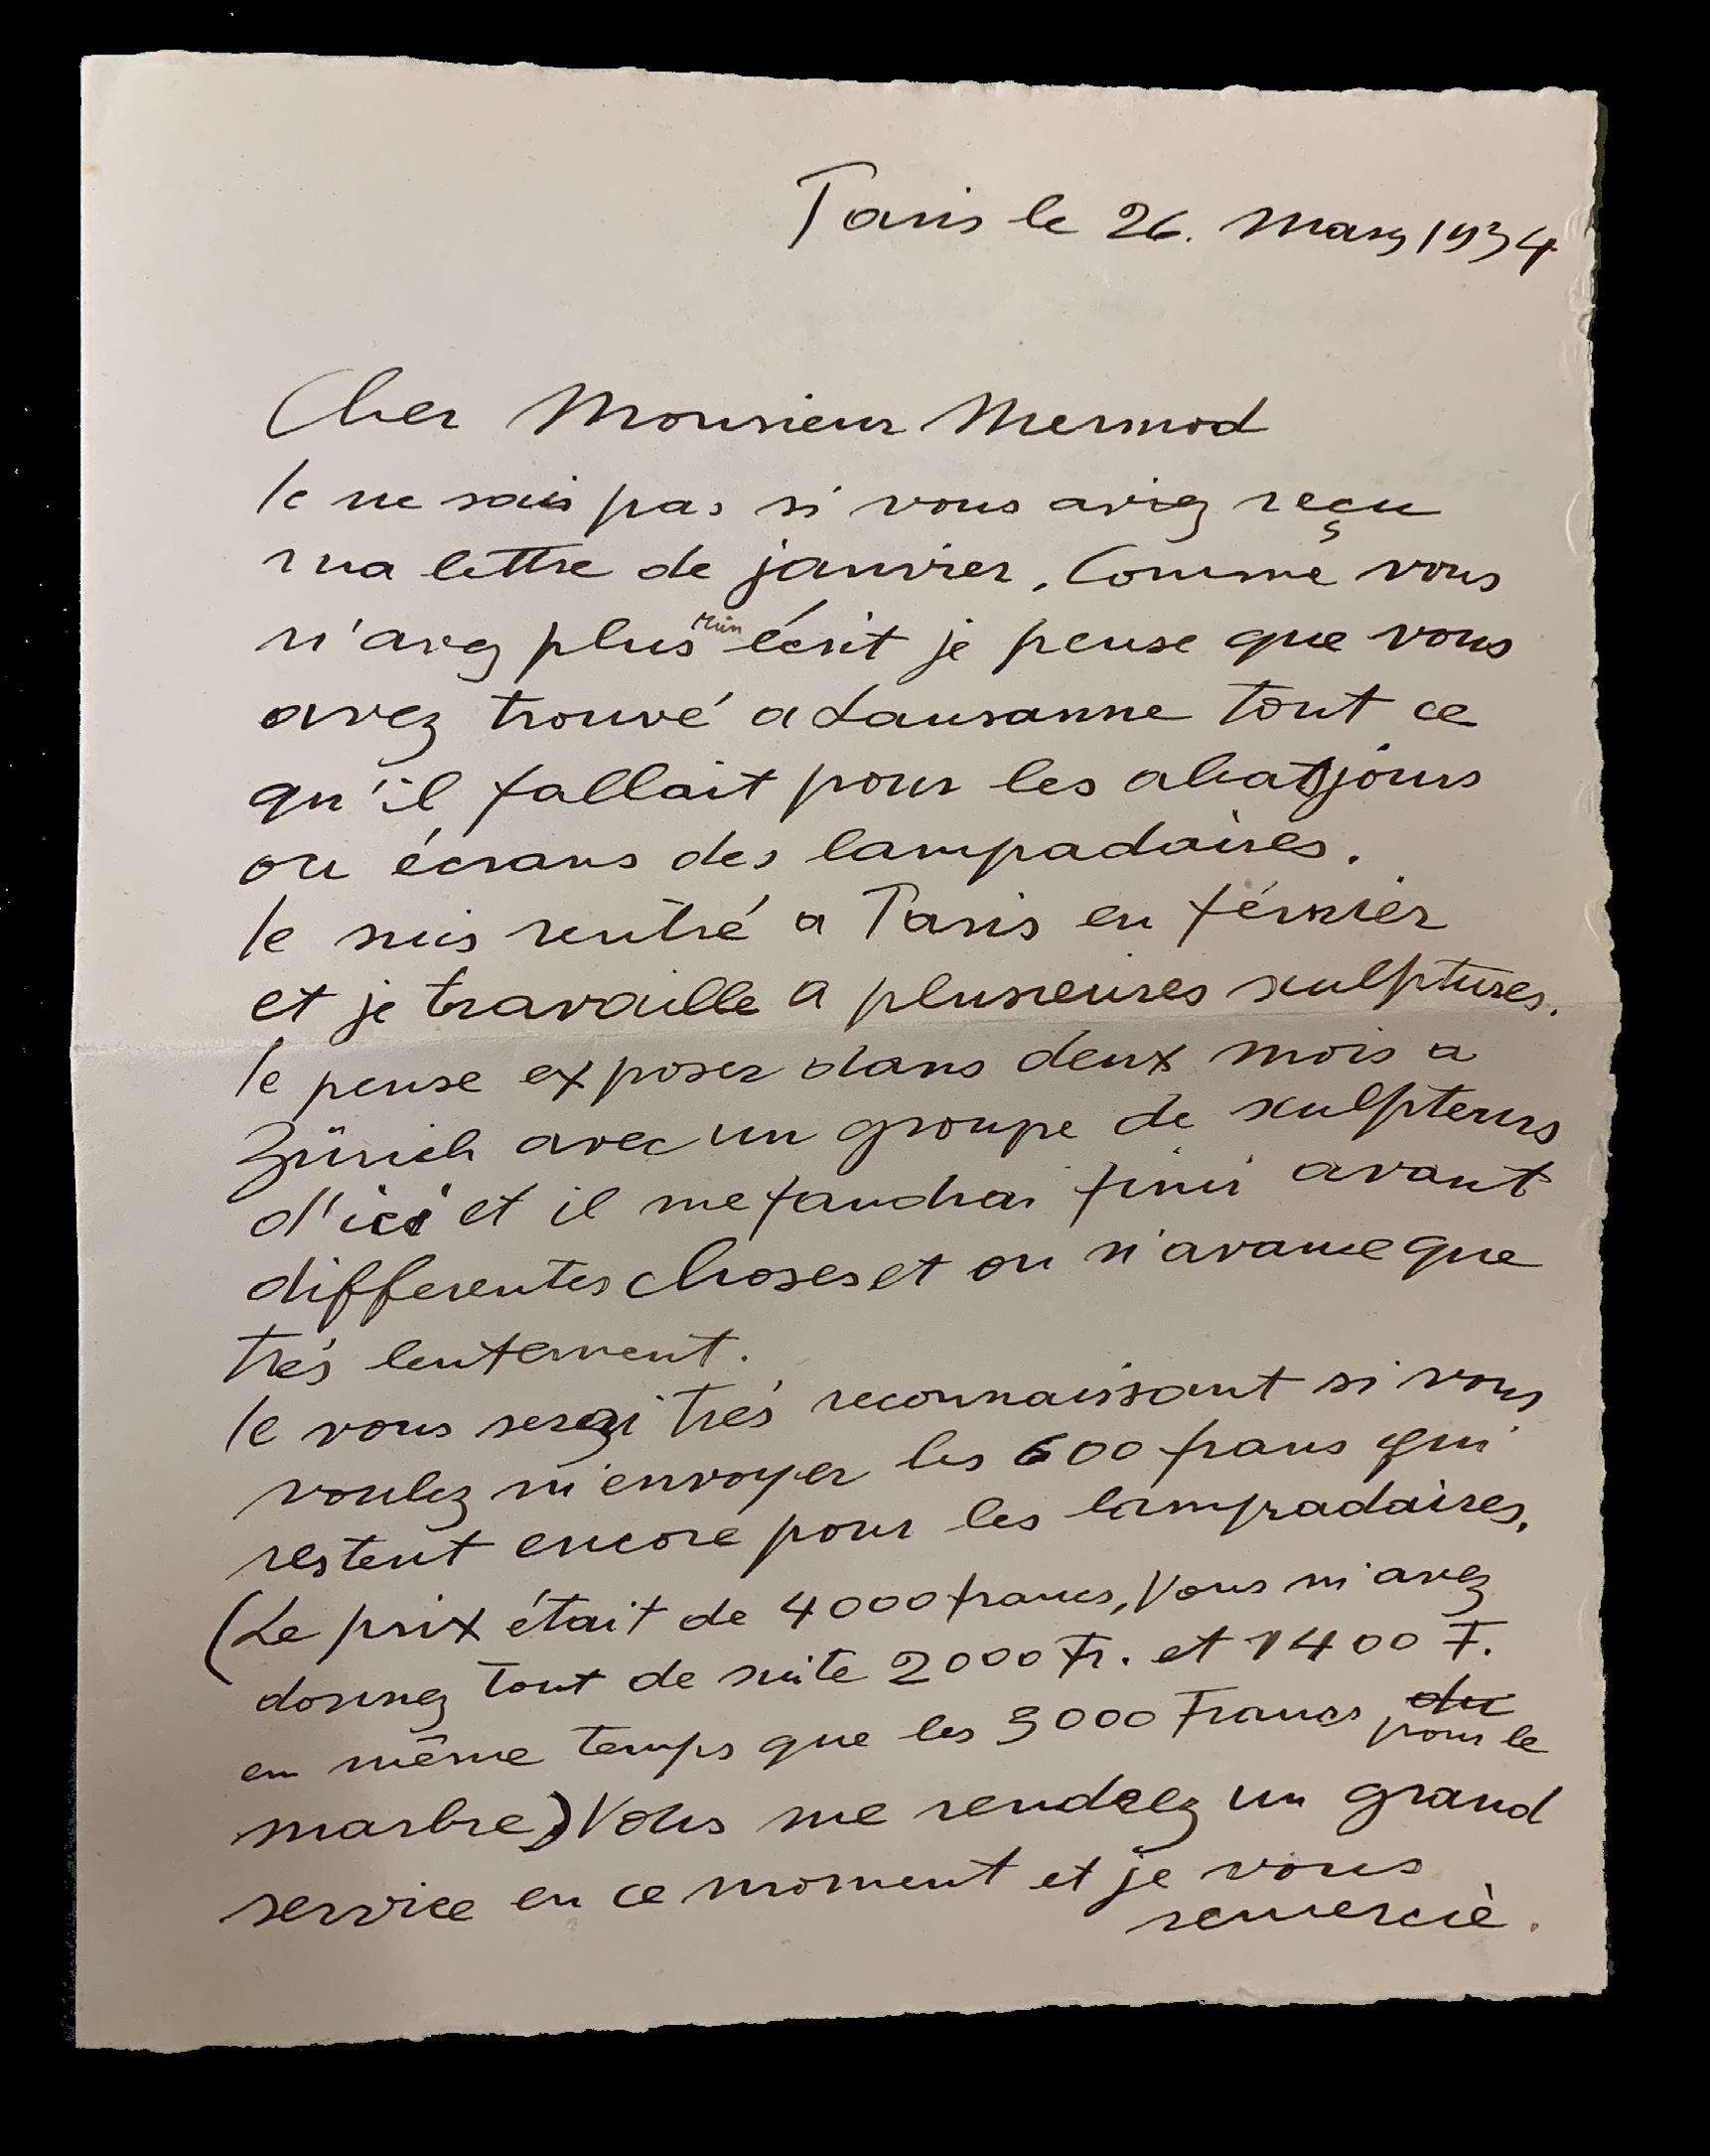 Paris le 26. Mars 1934
Cher Monsieur Mermod
Je ne sais pas si vous aviez reçu
ma lettre de janvier. Comme vous
n'avez plus rien écrit je pense que vous
avez trouvé a Lausanne tout ce
qu'il fallait pour les abatjours
ou écrans des lampadaires.
Je suis rentré a Paris en février
et je travaille a plusieures sculptures.
Je pense exposer dans deux mois a
Zürich avec un groupe de sculpteurs
d'ici et il me faudrai finir avant
differentes choses et on n'avance que
trés lentement.
Je vous serai trés reconnaissant si vous
voulez m'envoyer les 600 francs qui
restent encore pour les lampadaires.
(Le prix était de 4000 francs, Vous m'avez
donnez tout de suite 2000 Fr. et 1400 F.
en même temps que les 3000 Francs du
pour le
marbre) Vous me rendrez un grand
service en ce moment et je vous
remerciè.